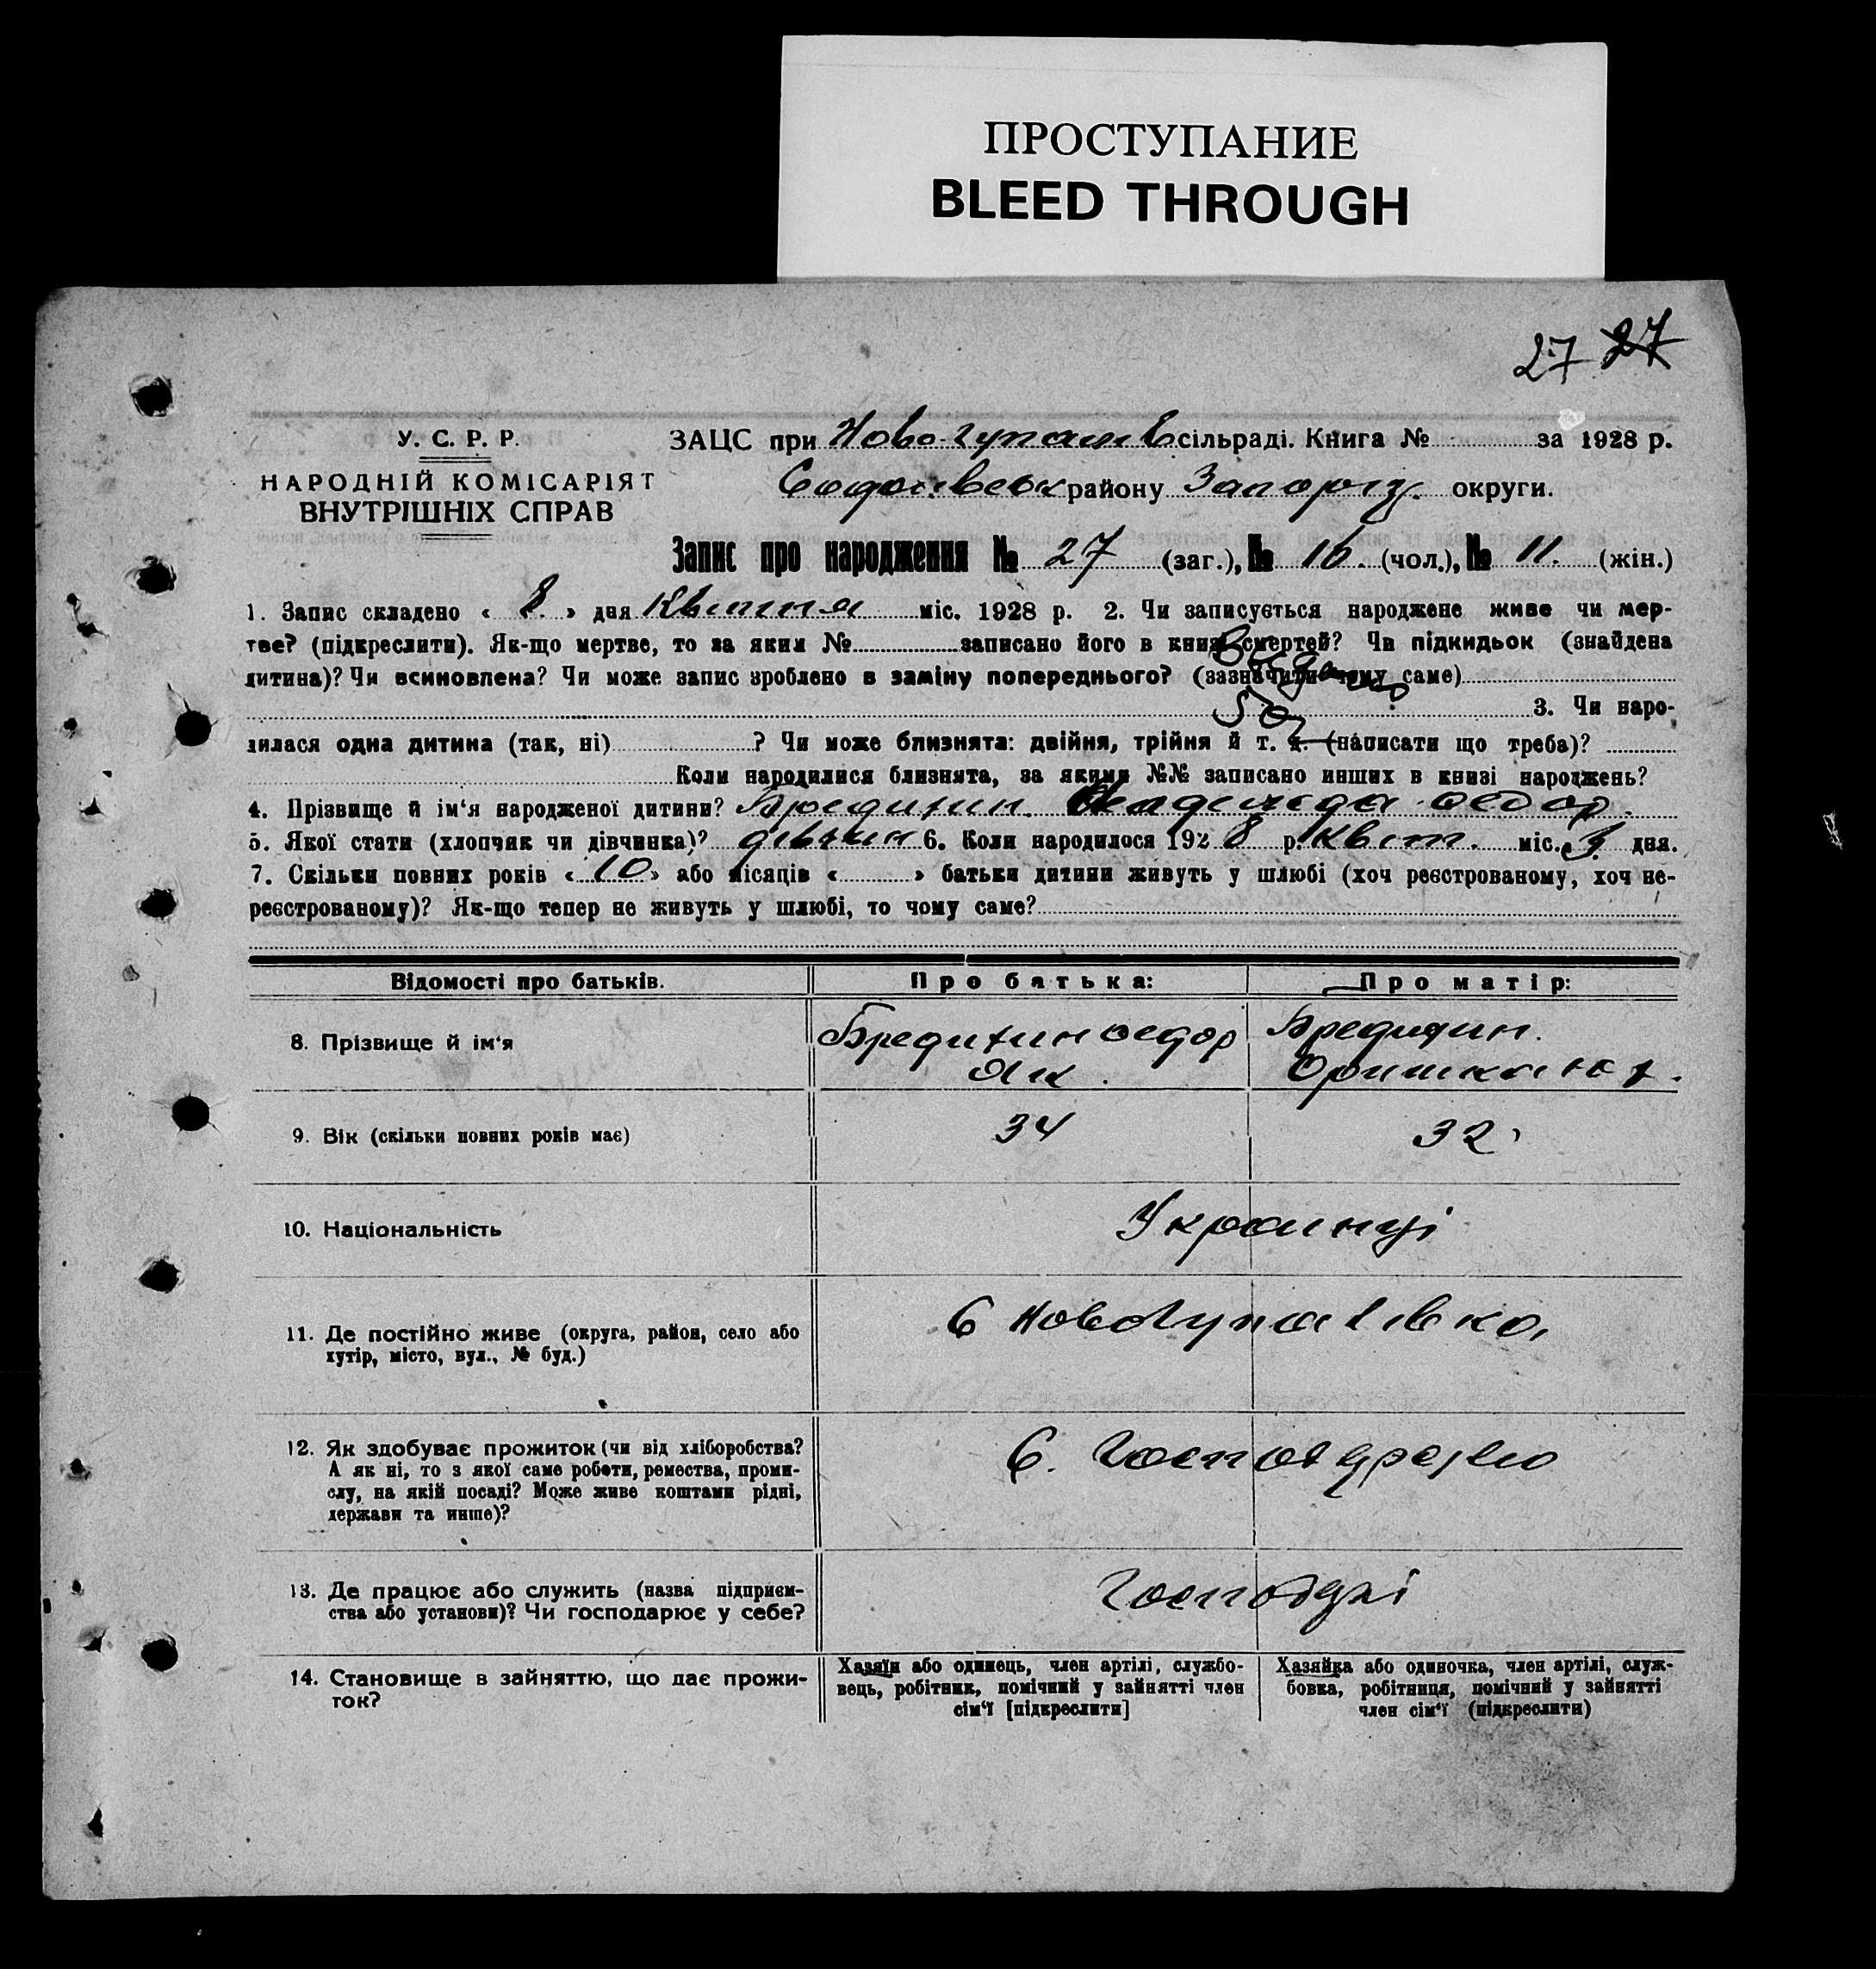 ПРОСТУПАНИЕ
BLEED THROUGH
27 27
У. С. Р. Р.
НАРОДНІЙ КОМІСАРІЯТ
ВНУТРІШНІХ СПРАВ
ЗАЦС при Ново-Гупалів сільраді. Книга № за 1928 р.
району Запоріз. округи.
Запис про народження № 27 (заг.), № 16. (чол.), № 11. (жін.)
1. Запис складено « 8 » дня Квітня міс. 1928 р. 2. Чи записується народжене живе чи мер-
тве? (підкреслити). Як-що мертве, то за яким № записано його в книзі смертей? Чи підкидьок (знайдена
дитина)? Чи всиновлена? Чи може запис зроблено в заміну попереднього? (зазначити чому саме)
3. Чи наро-
дилася одна дитина (так, ні) ? Чи може близнята: двійня, трійня й т. д. (написати що треба)?
Коли народилися близнята, за якими №№ записано инших в книзі народжень?
4. Прізвище й ім‘я народженої дитини? Бредихин Надежда Федор.
5. Якої стати (хлопчик чи дівчинка)? дівчин 6. Коли народилося 1928 р. Квіт. міс. 3 дня.
7. Скільки повних років « 10 » або місяців « » батьки дитини живуть у шлюбі (хоч реєстрованому, хоч не-
реєстрованому)? Як-що тепер не живуть у шлюбі, то чому саме?
Відомості про батьків.
Про батька:
Про матір:
8. Прізвище й ім‘я
Бредихин Федор
Як.
Бредихин.
Оришка
9. Вік (скільки повних років має)
34
32
10. Національність
Украинці
11. Де постійно живе (округа, район, село або
хутір, місто, вул., № буд.)
С Новогупалівка
12. Як здобуває прожиток (чи від хліборобства?
А як ні, то з якої саме роботи, ремества, проми-
слу, на якій посаді? Може живе коштами рідні,
держави та инше)?
С.
13. Де працює або служить (назва підприєм-
ства або установи)? Чи господарює у себе?
14. Становище в зайняттю, що дає прожи-
ток?
Хазяїн або одинець, член артілі, службо-
вець, робітник, помічний у зайнятті член
сім‘ї [підкреслити]
Хазяйка або одиночка, член артілі, служ-
бовка, робітниця, помічний у зайнятті
член сім‘ї (підкреслити)